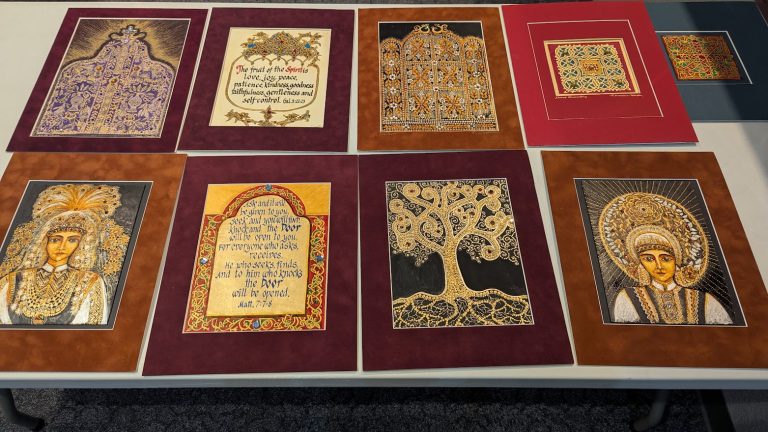 The fruit of the Spirit is
love, joy, peace,
patience, kindness, goodness
faithfulness, gentleness and
self control. Gal. 5:22-23
Ask and it will
be given to you,
seek and you will find,
knock and the Door
will be open to you.
For everyone who asks,
receives.
He who seeks, finds.
And to him who knocks
the Door
will be opened.
Matt. 7:7-8